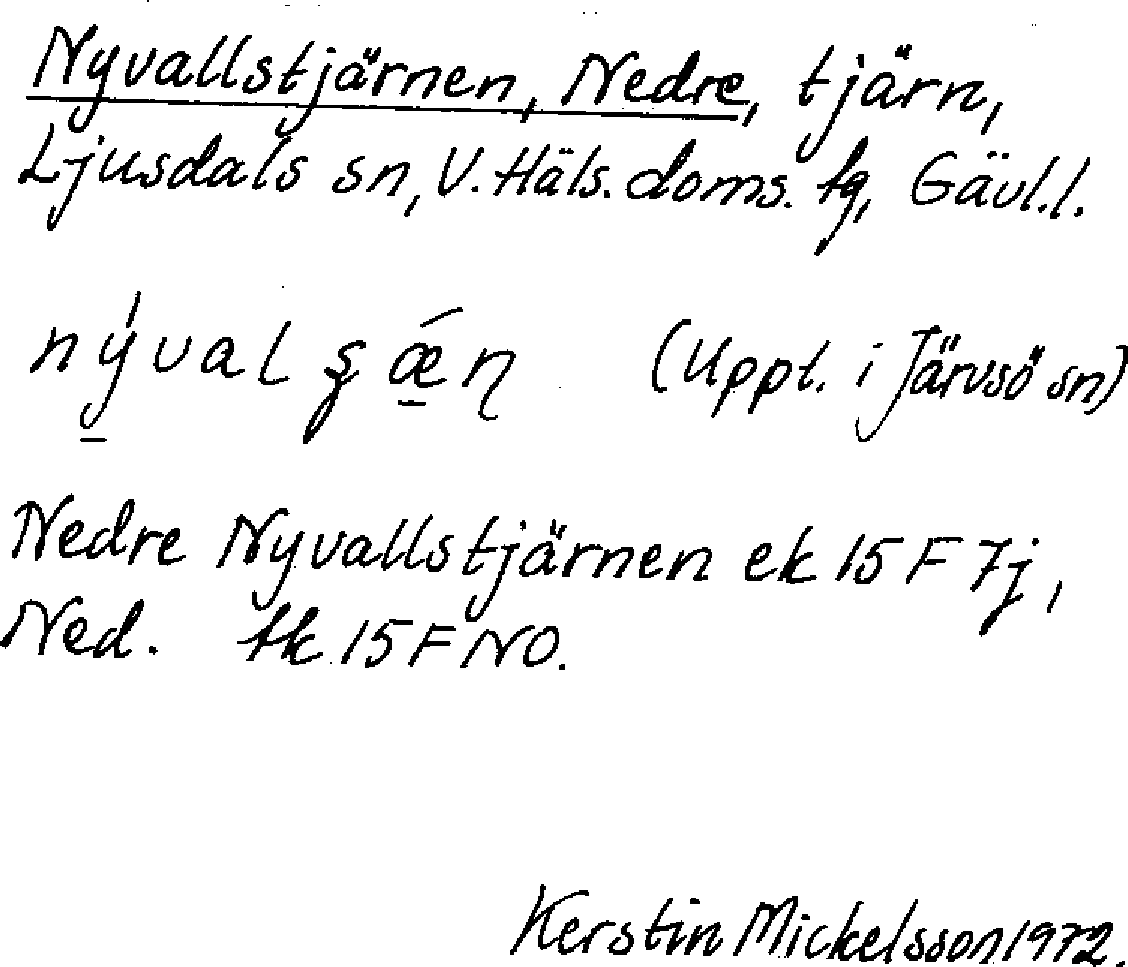 Nyvallstjärnen, Nedre, tjärn,
Ljusdals sn, V. Häls. doms. fg, Gävl.l.
(Uppt. i Järvsö sn)
Nedre Nyvallstjärnen ek 15 F 7j,
Ned. tk 15 F NO.
Kerstin Mickelsson 1972.